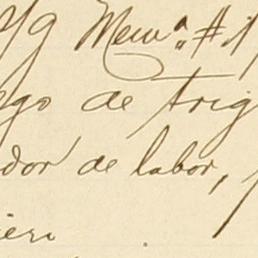 79 Mem.ª #1
ego de trig
dor de labor,
ieri